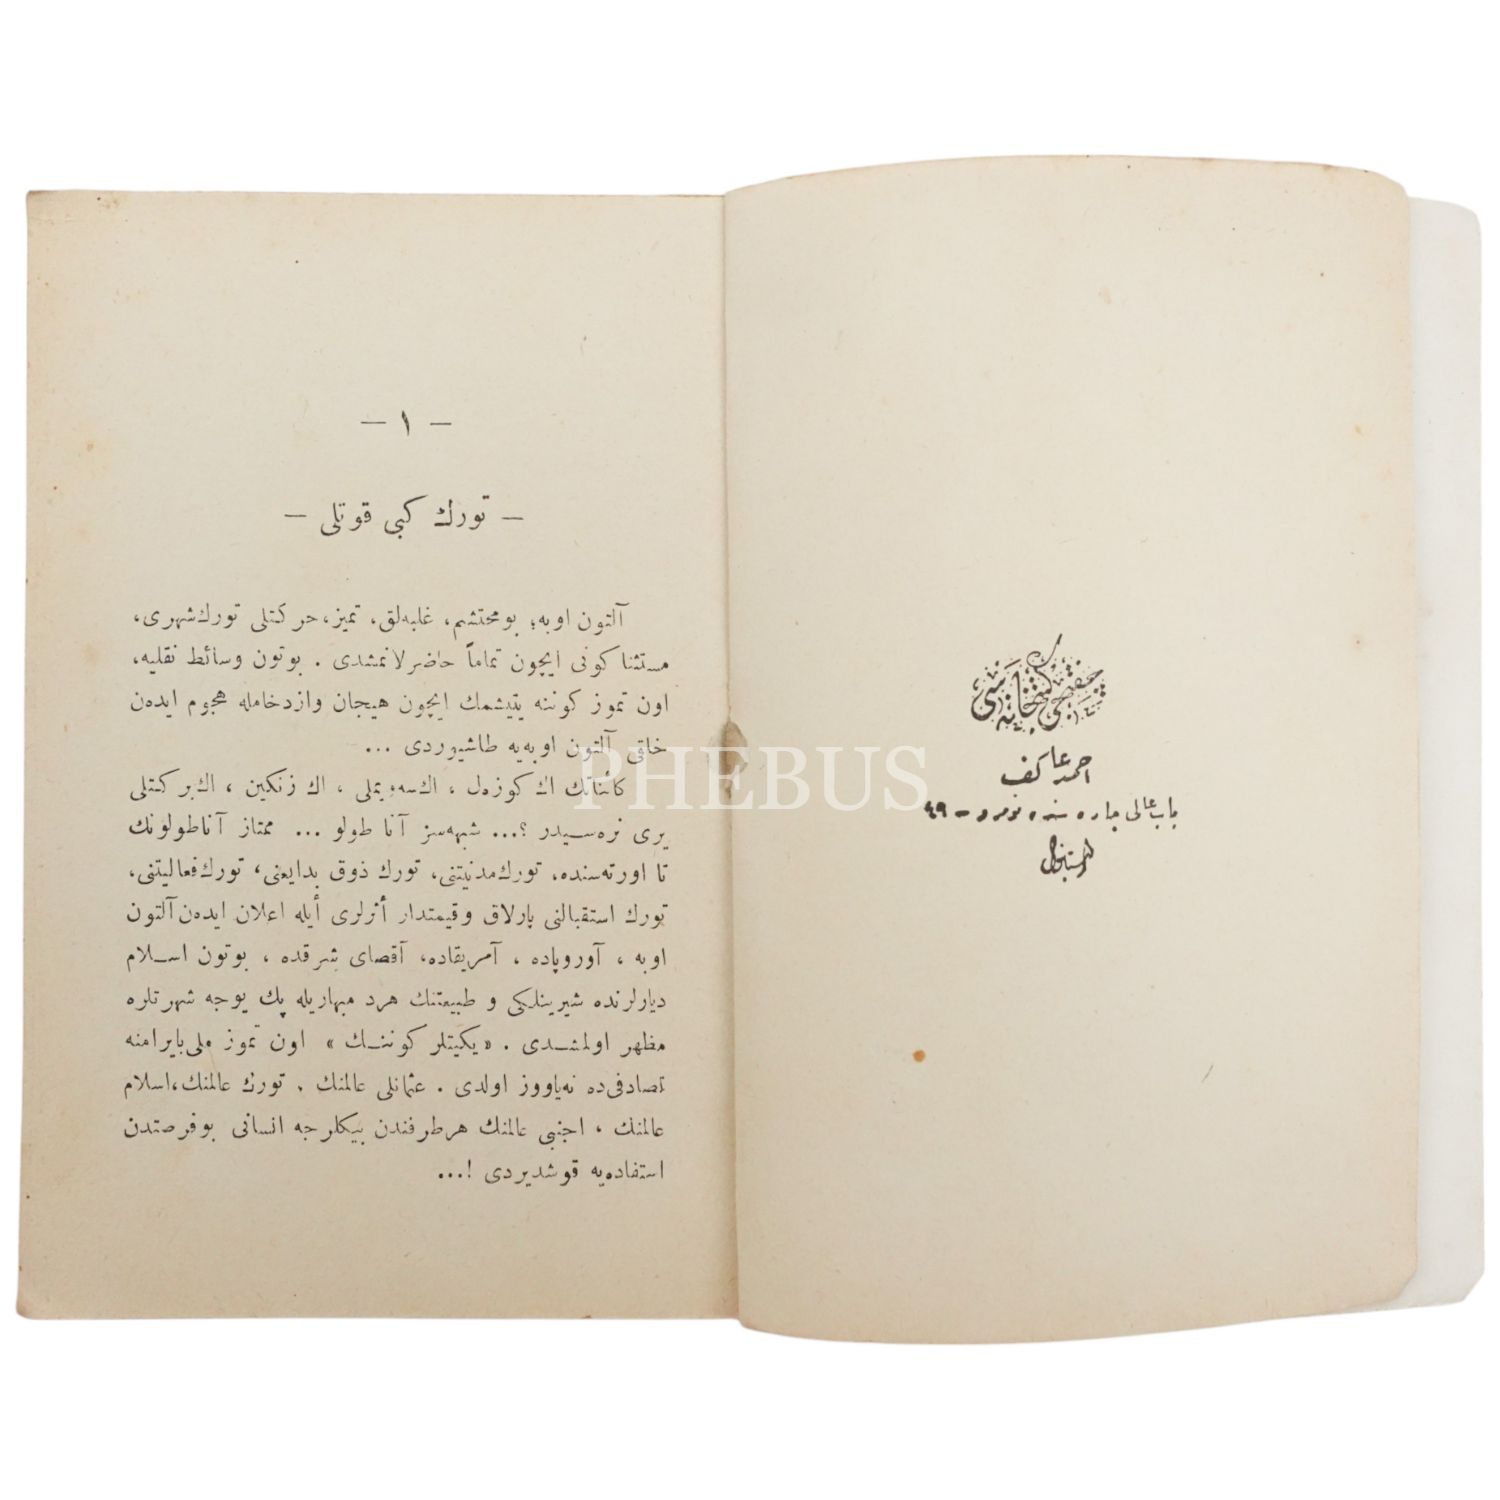 حفظی کتبخانه سی
احمد عاکف
باب عالی جاده سنده نومرو - ٤٩
استانبول
— ١ —
— تورك كبی قوتلی —
آلتون اوبه؛ بومحتشم، غلبه‌لق، تمیز، حركتلی تورك‌شهری،
مستثنا كونی ایچون تماماً حاضرلانمشدی . بوتون وسائط نقلیه،
اون تموز كوننه یتیشمك ایچون هیجان وازدخامله هجوم ایدەن
خلقی آلتون اوبه‌یه طاشیوردی ...
كائناتك اك كوزەل ، اك‌سه‌ویملی ، اك زنكین ، اك‌بركتلی
یری نرەسیدر ؟... شبهه‌سز آنا طولو ... ممتاز آناطولونك
تا اورته‌سنده، تورك‌مدنیتنی، تورك ذوق بدایعنی، تورك‌فعالیتنی،
تورك استقبالنی پارلاق وقیمتدار أثرلری أیله اعلان ایدەن آلتون
اوبه ، آوروپاده ، آمریقاده، آقصای شرقده ، بوتون اسلام
دیارلرنده شیرینلكی و طبیعتنك هرد مبهاریله پك یوجه شهرتلره
مظهر اولمشدی . «یكیتلر كوننك» اون تموز ملی‌بایرامنه
تصادفی‌ده نه‌یاووز اولدی . عثمانلی عالمنك . تورك عالمنك،اسلام
عالمنك ، اجنبی عالمنك هرطرفندن بیكلرجه انسانی بوفرصتدن
استفاده‌یه قوشدیردی !...
PHEBUS